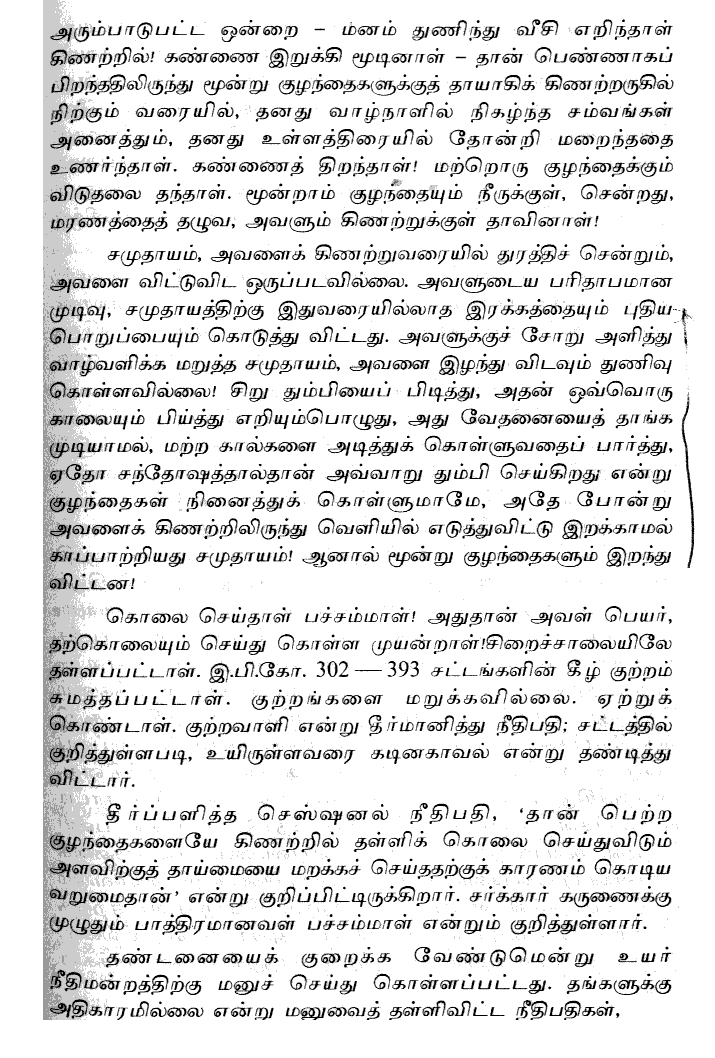 அரும்பாடுபட்ட ஒன்றை – மனம் துணிந்து வீசி எறிந்தாள்
கிணற்றில்! கண்ணை இறுக்கி மூடினாள் – தான் பெண்ணாகப்
பிறந்ததிலிருந்து மூன்று குழந்தைகளுக்குத் தாயாகிக் கிணற்றருகில்
நிற்கும் வரையில், தனது வாழ்நாளில் நிகழ்ந்த சம்வங்கள்
அனைத்தும், தனது உள்ளத்திரையில் தோன்றி மறைந்ததை
உணர்ந்தாள். கண்ணைத் திறந்தாள்! மற்றொரு குழந்தைக்கும்
விடுதலை தந்தாள். மூன்றாம் குழந்தையும் நீருக்குள், சென்றது,
மரணத்தைத் தழுவ, அவளும் கிணற்றுக்குள் தாவினாள்!
சமுதாயம், அவளைக் கிணற்றுவரையில் துரத்திச் சென்றும்,
அவளை விட்டுவிட ஒருப்படவில்லை. அவளுடைய பரிதாபமான
முடிவு, சமுதாயத்திற்கு இதுவரையில்லாத இரக்கத்தையும் புதிய
பொறுப்பையும் கொடுத்து விட்டது. அவளுக்குச் சோறு அளித்து
வாழ்வளிக்க மறுத்த சமுதாயம், அவளை இழந்து விடவும் துணிவு
கொள்ளவில்லை! சிறு தும்பியைப் பிடித்து, அதன் ஒவ்வொரு
காலையும் பிய்த்து எறியும்பொழுது, அது வேதனையைத் தாங்க
முடியாமல், மற்ற கால்களை அடித்துக் கொள்ளுவதைப் பார்த்து,
ஏதோ சந்தோஷத்தால்தான் அவ்வாறு தும்பி செய்கிறது என்று
குழந்தைகள் நினைத்துக் கொள்ளுமாமே, அதே போன்று
அவளைக் கிணற்றிலிருந்து வெளியில் எடுத்துவிட்டு இறக்காமல்
காப்பாற்றியது சமுதாயம்! ஆனால் மூன்று குழந்தைகளும் இறந்து
விட்டன!
கொலை செய்தாள் பச்சம்மாள்! அதுதான் அவள் பெயர்,
தற்கொலையும் செய்து கொள்ள முயன்றாள்!சிறைச்சாலையிலே
தள்ளப்பட்டாள். இ.பி.கோ. 302 — 393 சட்டங்களின் கீழ் குற்றம்
சுமத்தப்பட்டாள். குற்றங்களை மறுக்கவில்லை. ஏற்றுக்
கொண்டாள். குற்றவாளி என்று தீர்மானித்து நீதிபதி; சட்டத்தில்
குறித்துள்ளபடி, உயிருள்ளவரை கடினகாவல் என்று தண்டித்து
விட்டார்.
தீர்ப்பளித்த செஸ்ஷனல் நீதிபதி, ‘தான் பெற்ற
குழந்தைகளையே கிணற்றில் தள்ளிக் கொலை செய்துவிடும்
அளவிற்குத் தாய்மையை மறக்கச் செய்ததற்குக் காரணம் கொடிய
வறுமைதான்’ என்று குறிப்பிட்டிருக்கிறார். சர்க்கார் கருணைக்கு
முழுதும் பாத்திரமானவள் பச்சம்மாள் என்றும் குறித்துள்ளார்.
தண்டனையைக் குறைக்க வேண்டுமென்று உயர்
நீதிமன்றத்திற்கு மனுச் செய்து கொள்ளப்பட்டது. தங்களுக்கு
அதிகாரமில்லை என்று மனுவைத் தள்ளிவிட்ட நீதிபதிகள்,